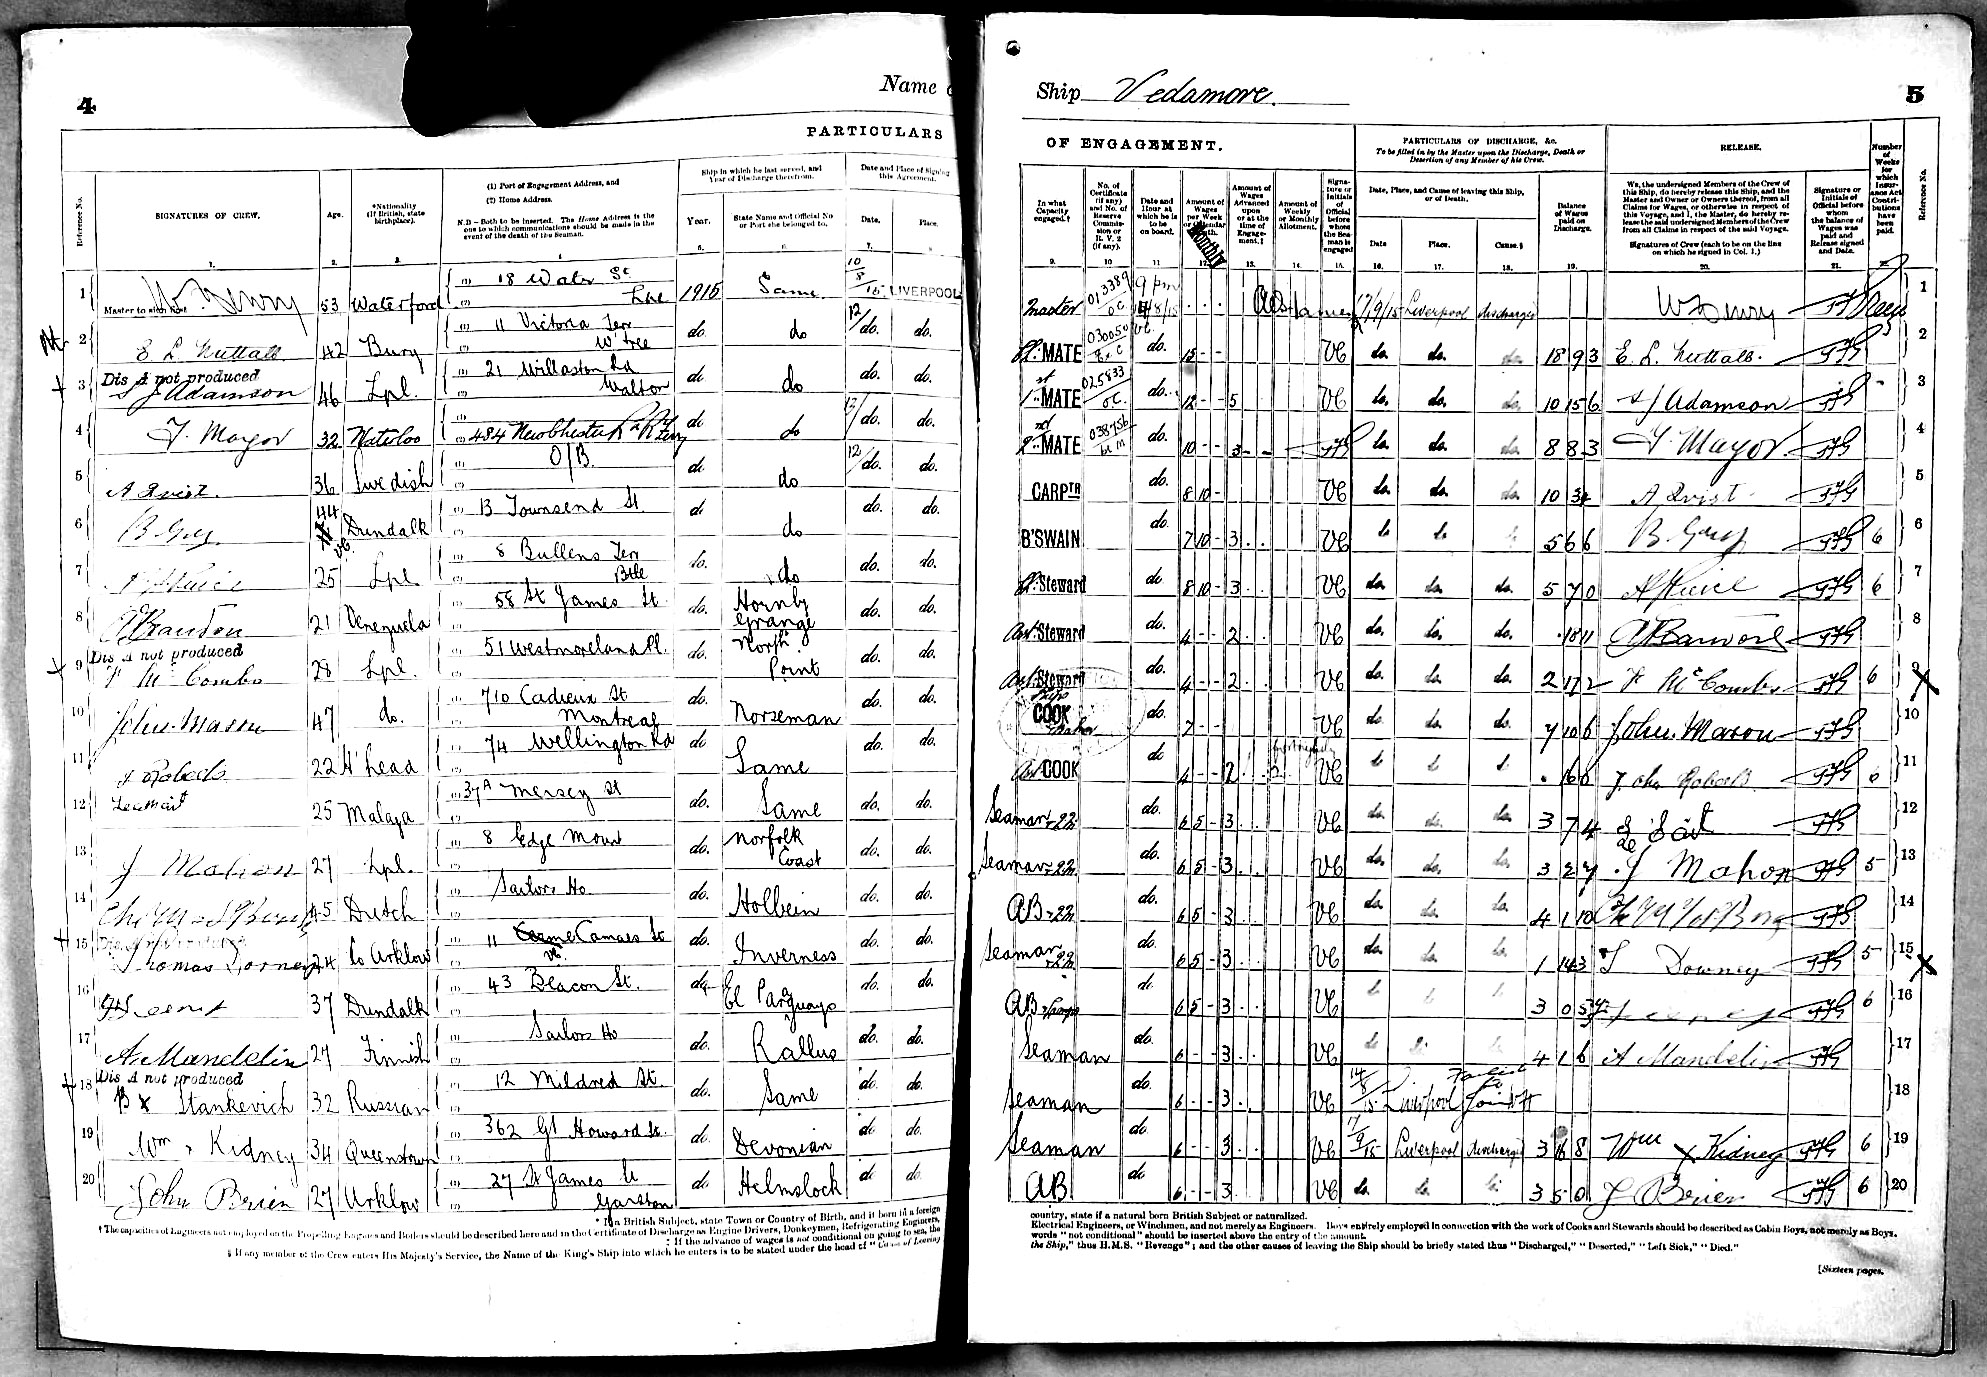 4
Name
PARTICULARS
Reference No.
SIGNATURES OF CREW.
Age.
*Nationality
(If British, state
birthplace).
(1) Port of Engagement Address, and
(2) Home Address.
N.B.—Both to be inserted. The Home Address is the
one to which communications should be made in the
event of the death of the Seaman.
Ship in which he last served, and
Year of Discharge therefrom.
Year.
State Name and Official No
or Port she belonged to.
Date and Place of Signing
this Agreement.
Date.
Place.
1 Master to sign first W Henry 53 Waterford (1) 18 Water St (2) Lpl 1915 Same 10/8/15 LIVERPOOL
2 E L Nuttall 42 Bury (1) 11 Victoria Terr (2) W'tree do. do 12/do. do.
Dis A not produced
3 S J Adamson 46 Lpl. (1) 21 Willaston Rd (2) Walton do do do. do.
4 F. Mayor 32 Waterloo (2) 484 New Chester Rd R Ferry do do 13/do. do.
5 A Qvist. 36 Swedish (1) O/B. do. do 12/do. do.
6 B Gray 44 Dundalk (1) 13 Townsend St. do do. do.
7 25 Lpl (1) 8 Bullens Terr (2) Btle do. do do. do.
8 21 Venezuela (1) 58 St James St. do. Hornby Grange do. do.
Dis A not produced
9 F McCombs 28 Lpl. (1) 51 Westmoreland Pl. do. North Point do. do.
10 John Mason 47 do. (1) 710 Cadieux St (2) Montreal do. Norseman do. do.
11 J Roberts 22 B'head (1) 74 Wellington Rd do Same do. do.
12 25 Malaga 37A Mersey St do. Same do. do.
13 J Mahon 27 Lpl. (1) 8 Edge Mount do. Norfolk Coast do. do.
14 45 Dutch Sailors Ho. do. Holbein do. do.
15 Thomas Dorney 24 Co Arklow (1) 11 Camaes St do. Inverness do. do.
16 37 Dundalk (1) 43 Beacon St. do El Paraguayo do. do.
17 A. Mandelin 27 Finnish Sailors Ho do. Rallus do. do.
Dis A not produced
18 B x Stankevich 32 Russian (1) 12 Mildred St. do. Same do. do.
19 Wm x Kidney 34 Queenstown (1) 362 Gt Howard St. do. Devonian do do.
20 John Brien 27 Arklow (1) 27 St James St (2) Garston do Helmslock do do.
* If a British Subject, state Town or Country of Birth, and if born in a foreign
† The capacities of Engineers not employed on the Propelling Engines and Boilers should be described here and in the Certificate of Discharge as Engine Drivers, Donkeymen, Refrigerating Engineers,
‡ If the advance of wages is not conditional on going to sea, the
§ If any member of the Crew enters His Majesty's Service, the Name of the King's Ship into which he enters is to be stated under the head of "Cause of Leaving
Ship Vedamore.
5
OF ENGAGEMENT.
PARTICULARS OF DISCHARGE, &c.
To be filled in by the Master upon the Discharge, Death or
Desertion of any Member of his Crew.
RELEASE.
In what
Capacity
engaged.†
No. of
Certificate
(if any)
and No. of
Reserve
Commis-
sion or
R. V. 2
(if any).
Date and
Hour at
which he is
to be
on board.
Amount of
Wages
per Week
or Calendar
Month.
Monthly
Amount of
Wages
Advanced
upon
or at the
time of
Engage-
ment.‡
Amount of
Weekly
or Monthly
Allotment.
Signa-
ture or
Initials
of
Official
before
whom
the Sea-
man is
engaged
Date, Place, and Cause of leaving this Ship,
or of Death.
Date
Place.
Cause.§
Balance
of Wages
paid on
Discharge.
We, the undersigned Members of the Crew of
this Ship, do hereby release this Ship, and the
Master and Owner or Owners thereof, from all
Claims for Wages, or otherwise in respect of
this Voyage, and I, the Master, do hereby re-
lease the said undersigned Members of the Crew
from all Claims in respect of the said Voyage.
Signatures of Crew (each to be on the line
on which he signed in Col. 1.)
Signature or
Initials of
Official before
whom
the balance of
Wages was
paid and
Release signed
and Date.
Number
of
Weeks
for
which
Insur-
ance Act
Contri-
butions
have
been
paid.
Reference No.
Master 013389 O.C 9 pm 17/9/15 Liverpool discharged W Henry 1
MATE 030050 do. 15 - - VC do. do. do. 18 9 3 E. L. Nuttall. 2
1st MATE 025833 O.C. do. 12 - - 5 VC do. do. do. 10 15 6 S J Adamson 3
2nd MATE 038756 do. 10 - - 3 - - do. do. do. 8 8 3 F Mayor. 4
CARPTR do. 8 10 - VC do. do. do. 10 3 4 A Qvist 5
B'SWAIN do. 7 10 - 3 VC do do do 5 6 6 B. Gray 6 6
Steward do 8 10 - 3 VC do. do. do. 5 7 0 6 7
Asst. Steward do. 4 - - 2 VC do. do. do. 18 11 8
Asst. Steward do. 4 - - 2 VC do. do. do. 2 17 2 F McCombs 6 9
Ships COOK Baker do. 7 - - VC do. do. do. 7 10 6 John Mason 10
Asst COOK do 4 - - 2 VC do do do 16 0 John Roberts 6 11
Seaman do. 6 5 - 3 VC do. do. do. 3 7 4 12
Seaman do. 6 5 - 3 VC do. do. do. 3 2 7 J Mahon 5 13
AB do. 6 5 - 3 VC do. do. do. 4 1 10 14
Seaman do. 6 5 - 3 VC do. do. do. 1 14 3 T Downey 5 15
AB do 6 5 - 3 VC do do do 3 0 5 6 16
Seaman do. 6 - - 3 VC do do do 4 1 6 A Mandelin 17
Seaman do. 6 - - 3 VC 14/8/15 Liverpool Failed to Join 18
Seaman do 6 - - 3 VC 17/9/15 Liverpool discharged 3 16 8 Wm x Kidney 6 19
AB do 6 - - 3 VC do. do. do. 3 5 0 J Brien 6 20
country, state if a natural born British Subject or naturalized.
Electrical Engineers, or Winchmen, and not merely as Engineers. Boys entirely employed in connection with the work of Cooks and Stewards should be described as Cabin Boys, not merely as Boys.
words "not conditional" should be inserted above the entry of the amount.
the Ship," thus H.M.S. "Revenge"; and the other causes of leaving the Ship should be briefly stated thus "Discharged," "Deserted," "Left Sick," "Died."
[Sixteen pages.